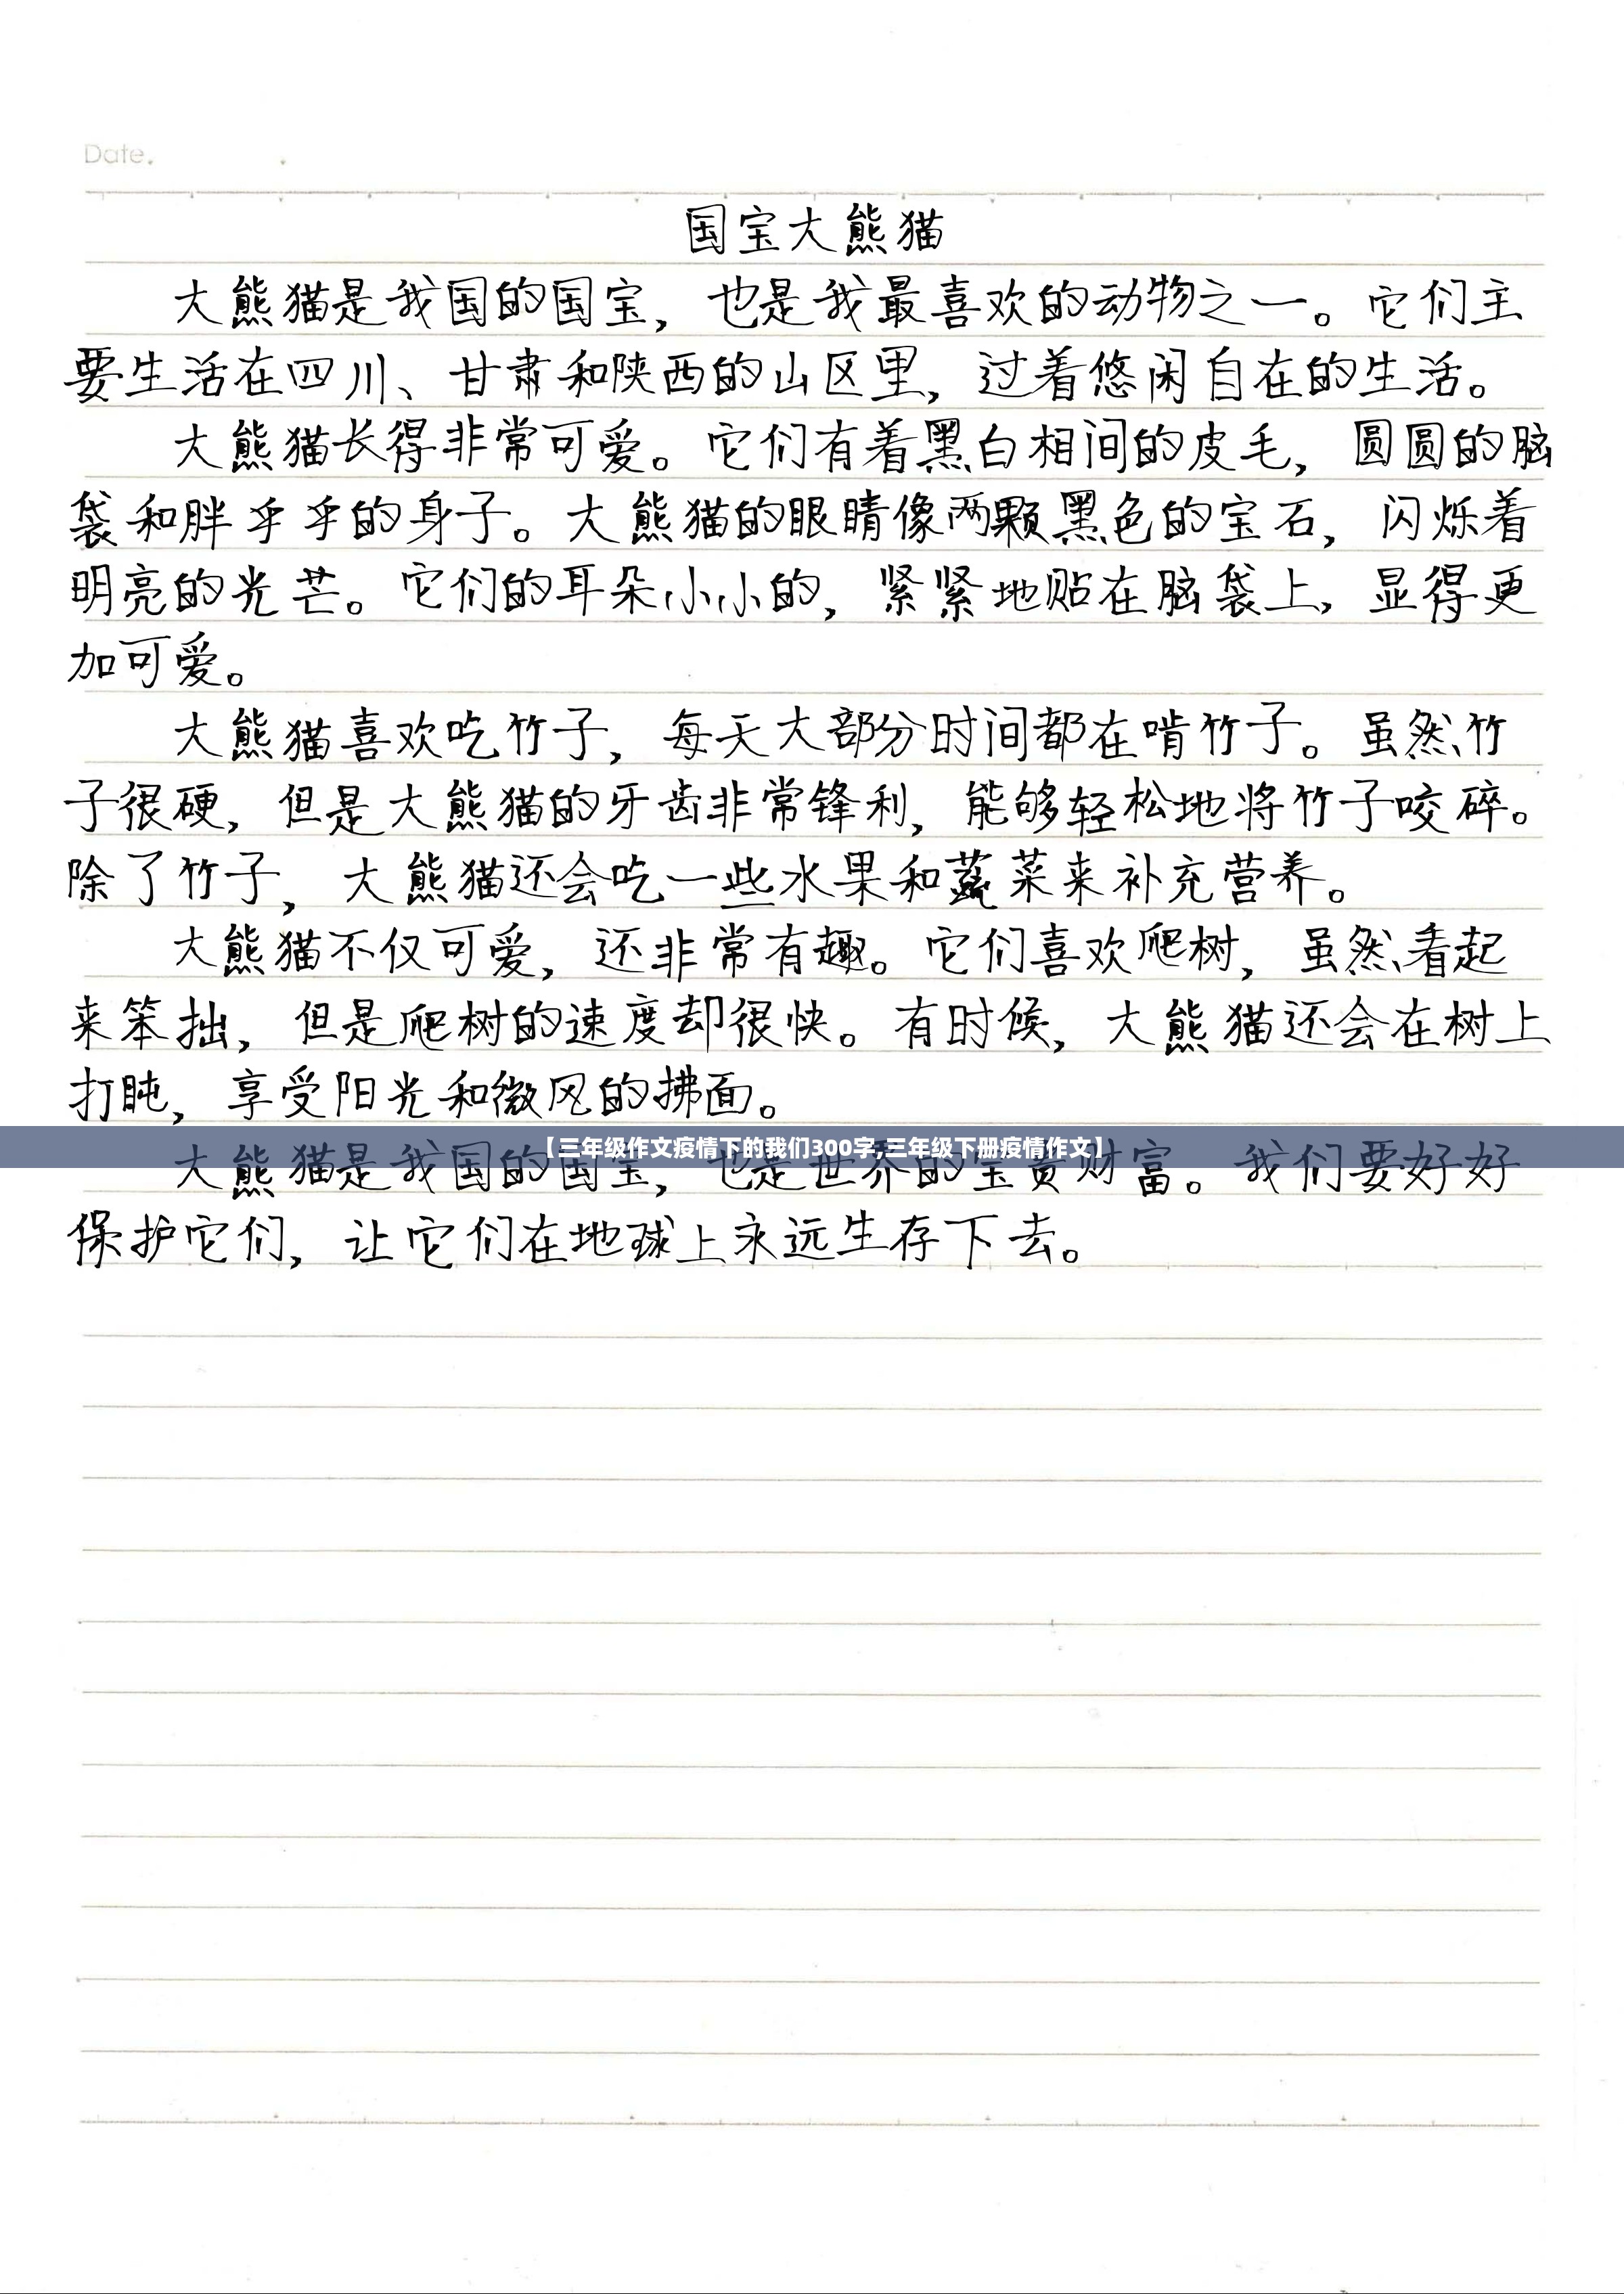 Date.
国宝大熊猫
大熊猫是我国的国宝，也是我最喜欢的动物之一。它们主
要生活在四川、甘肃和陕西的山区里，过着悠闲自在的生活。
大熊猫长得非常可爱。它们有着黑白相间的皮毛，圆圆的脑
袋和胖乎乎的身子。大熊猫的眼睛像两颗黑色的宝石，闪烁着
明亮的光芒。它们的耳朵小小的，紧紧地贴在脑袋上，显得更
加可爱。
大熊猫喜欢吃竹子，每天大部分时间都在啃竹子。虽然竹
子很硬，但是大熊猫的牙齿非常锋利，能够轻松地将竹子咬碎。
除了竹子，大熊猫还会吃一些水果和蔬菜来补充营养。
大熊猫不仅可爱，还非常有趣。它们喜欢爬树，虽然看起
来笨拙，但是爬树的速度却很快。有时候，大熊猫还会在树上
打盹，享受阳光和微风的拂面。
【三年级作文疫情下的我们300字,三年级下册疫情作文】
大熊猫是我国的国宝，也是世界的宝贵财富。我们要好好
保护它们，让它们在地球上永远生存下去。